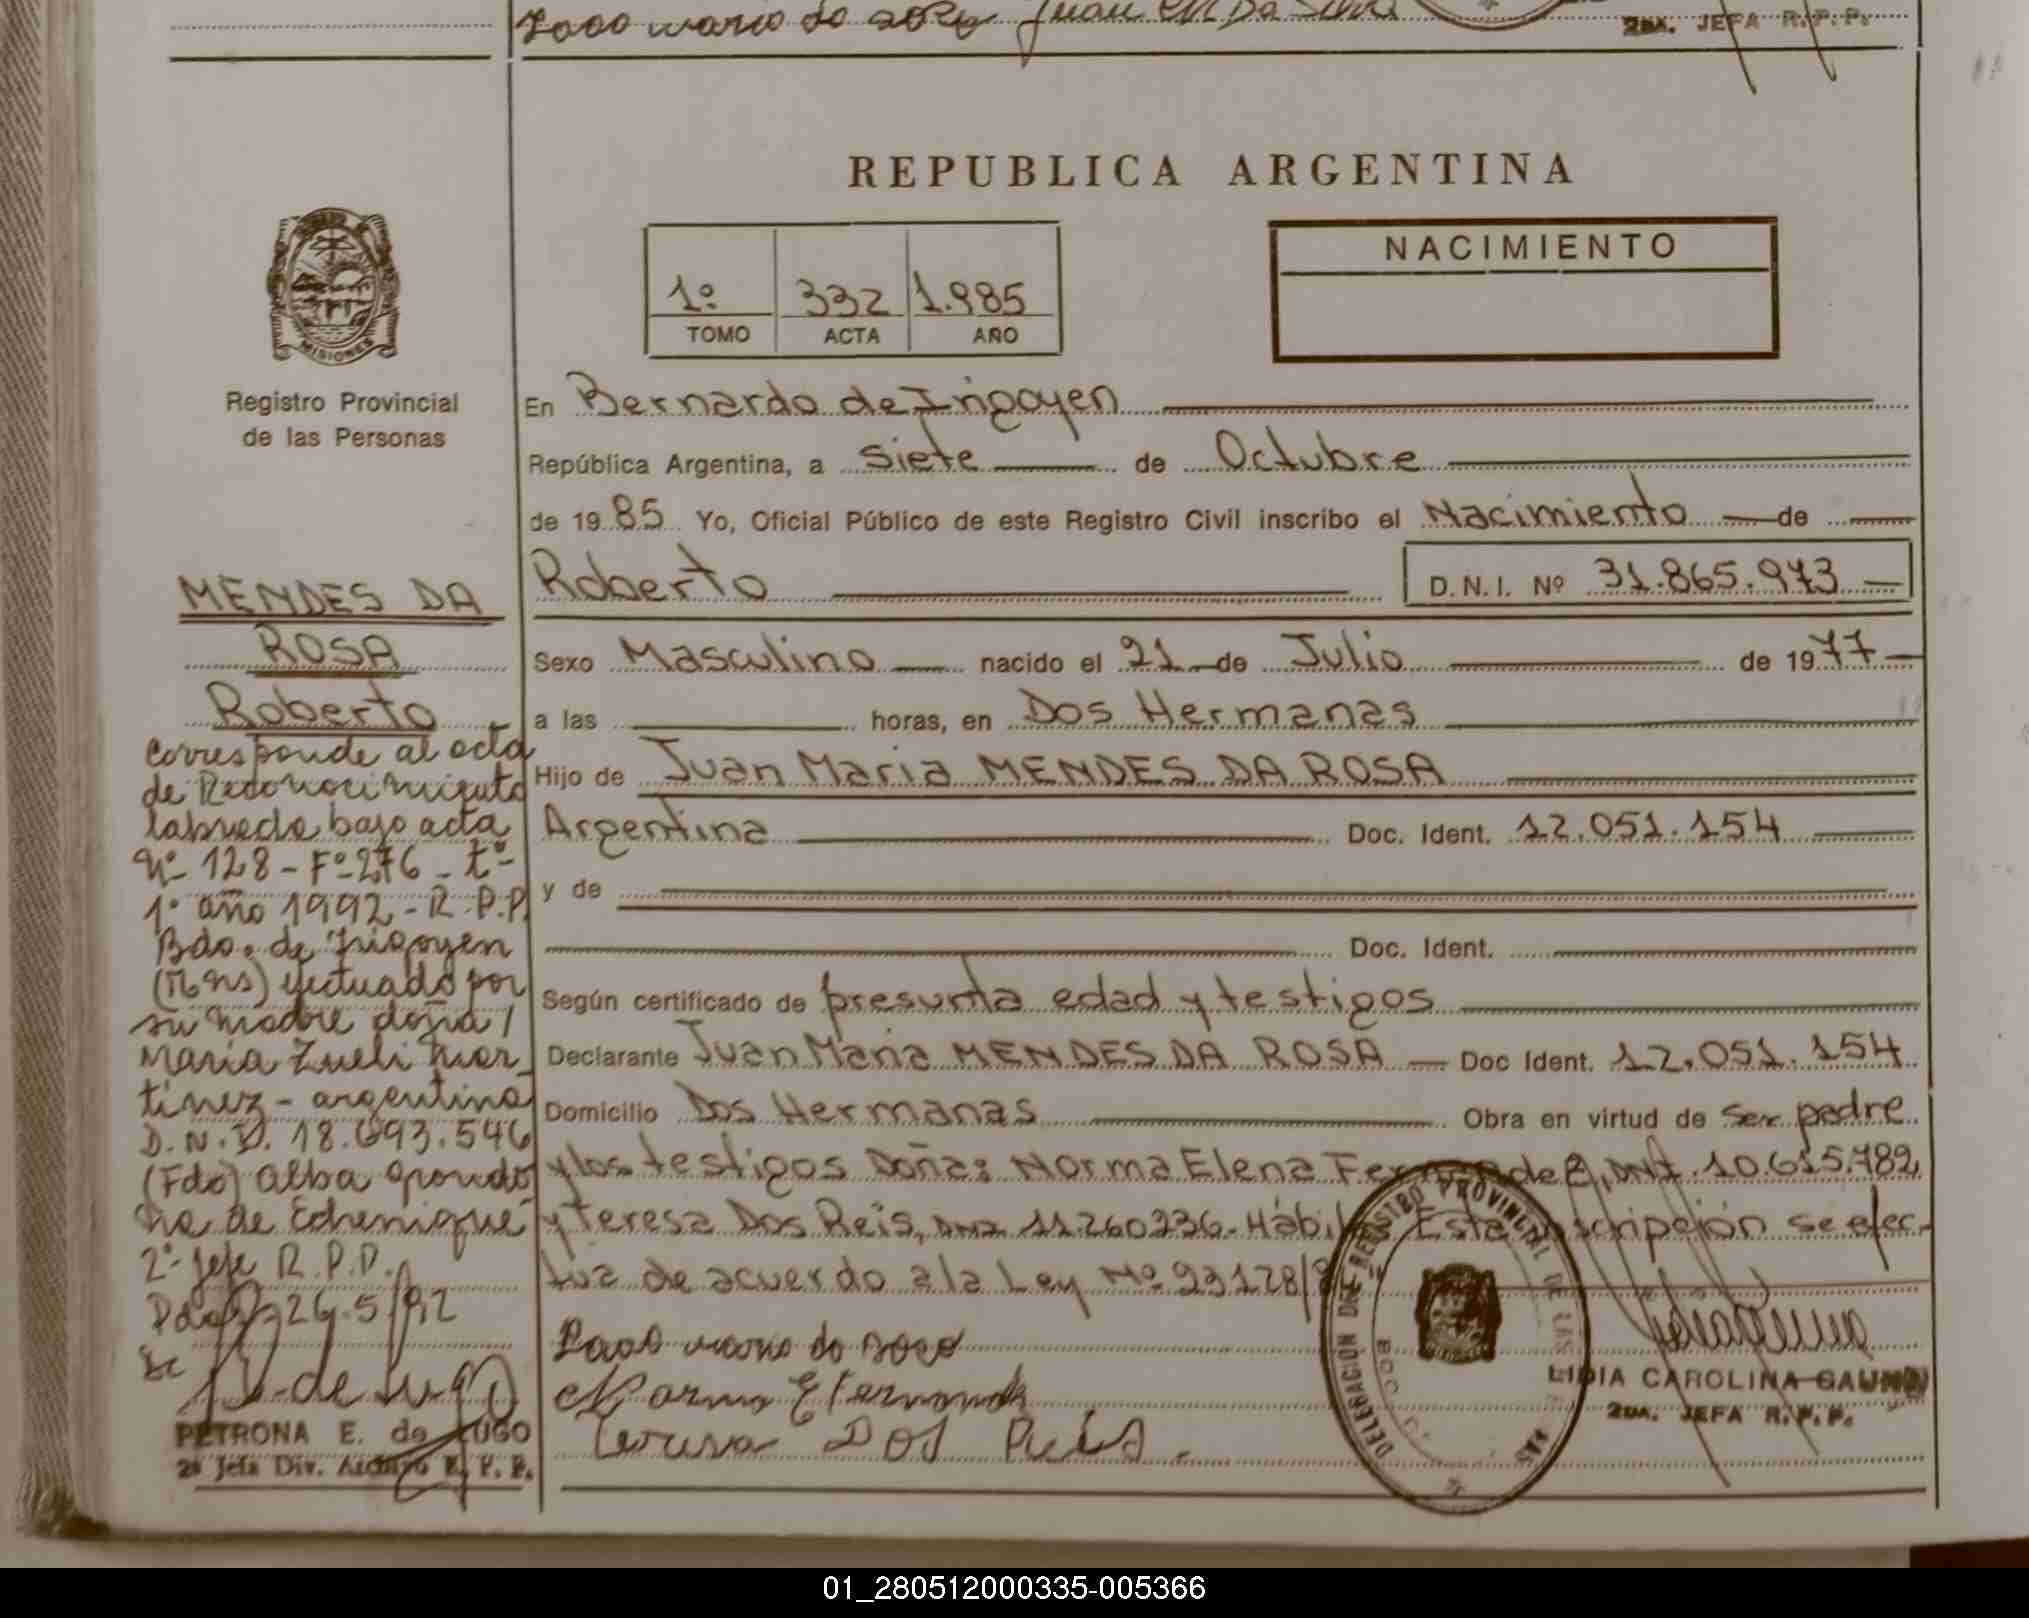 2DA. JEFA R.P.P.
REPUBLICA ARGENTINA
NACIMIENTO
1º 332 1.985
TOMO ACTA AÑO
MISIONES
Registro Provincial
de las Personas
En Bernardo de Irigoyen
República Argentina, a siete de Octubre
de 1985 Yo, Oficial Público de este Registro Civil inscribo el Nacimiento de
Roberto D.N.I. Nº 31.865.973
Sexo Masculino nacido el 21 de Julio de 1977
a las horas, en Dos Hermanas
Hijo de Juan Maria MENDES DA ROSA
Argentina Doc. Ident. 12.051.154
y de
Doc. Ident.
Según certificado de presunta edad y testigos
Declarante Juan Maria MENDES DA ROSA Doc Ident. 12.051.154
Domicilio Dos Hermanas Obra en virtud de ser padre
y los testigos Doña: Norma Elena Fernandez, DNI. 10.615.782
y Teresa Dos Reis, DNI 11.260236. Hábiles Esta inscripción se efec-
tua de acuerdo a la Ley Nº 23128/
Norma E Fernande
Teresa DOS
DELEGACIÓN DEL REGISTRO PROVINCIAL DE LAS
LIDIA CAROLINA
2DA. JEFA R.P.P.
MENDES DA
ROSA
Roberto
Corresponde al acta
de Reconocimiento
labrada bajo acta
Nº 128 - Fº 276 - tº
1º año 1992 - R.P.P.
Bdo. de Irigoyen
(Mns) efectuado por
su madre doña /
Maria Zueli Mar
tinez - argentina
D.N.I. 18.693.546
(Fdo) Alba
de Echenique
2º Jefe R.P.P.
26.5/92
PETRONA E. de LUGO
2ª Jefa Div. Archivo R.P.P.
01_280512000335-005366